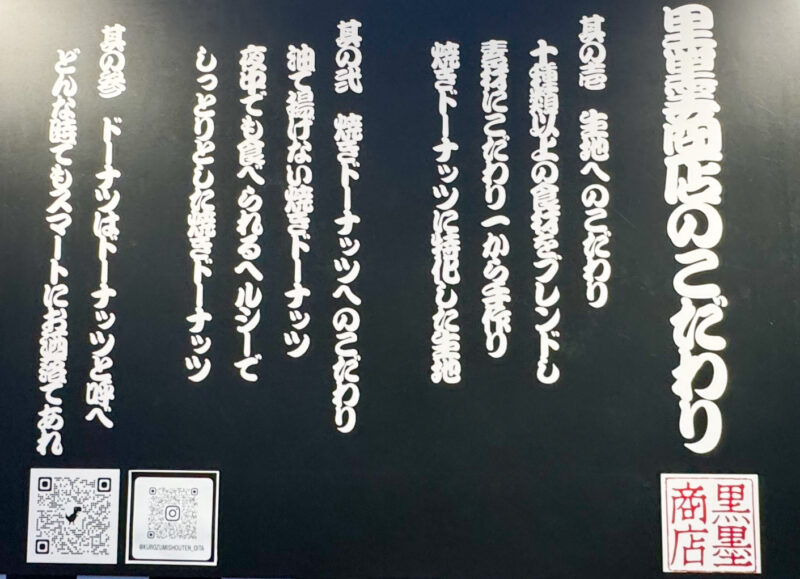 黒墨商店のこだわり
其の壱 生地へのこだわり
十種類以上の食材をブレンドし
素材にこだわり一から手作り
焼きドーナッツに特化した生地
其の弐 焼きドーナッツへのこだわり
油で揚げない焼きドーナッツ
夜中でも食べられるヘルシーで
しっとりとした焼きドーナッツ
其の参 ドーナツはドーナッツと呼べ
どんな時でもスマートにお洒落であれ
黒墨
商店
@KUROZUMISHOUTEN_OITA